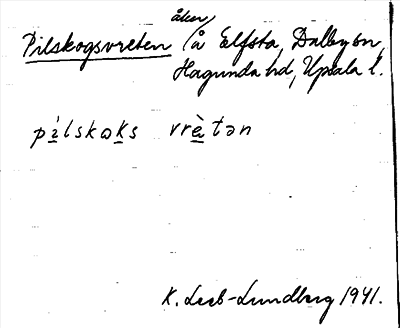 åker
Pilskogsvreten / å Elfsta, Dalby sn,
Hagunda hd, Upsala l.
pi̱lskωḵs vrè̱tən
K. Leeb-Lundberg 1941.